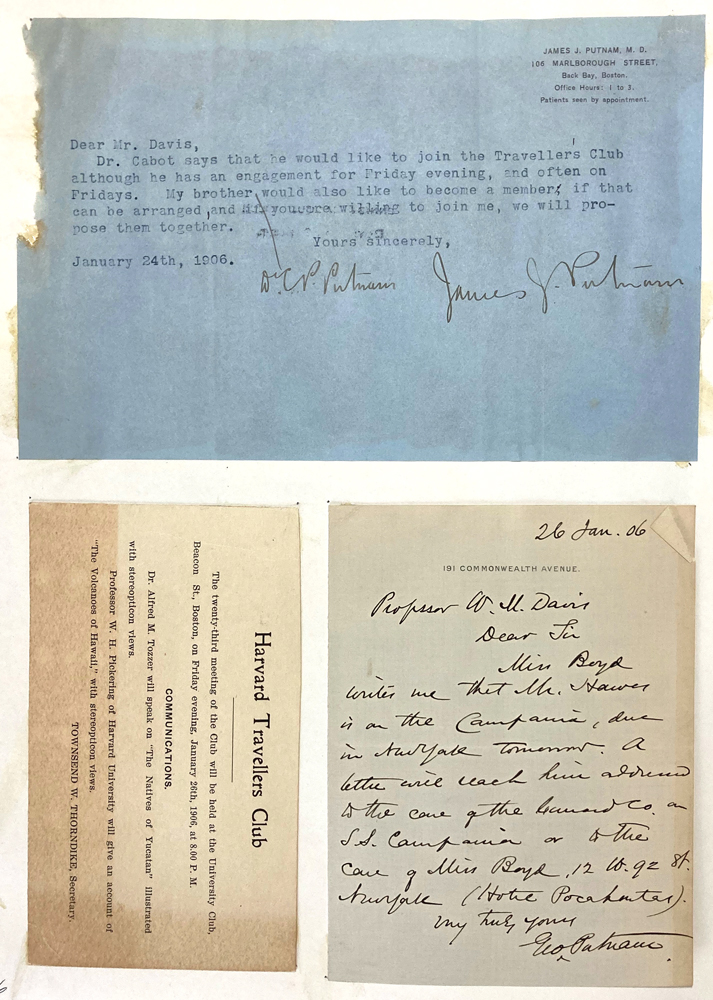 JAMES J. PUTNAM, M. D.
106 MARLBOROUGH STREET,
Back Bay, Boston.
Office Hours: 1 to 3.
Patients seen by appointment.
Dear Mr. Davis,
Dr. Cabot says that he would like to join the Travellers Club
although he has an engagement for Friday evening, and often on
Fridays. My brother would also like to become a member, if that
can be arranged, and if you are willing to join me, we will pro-
pose them together.
Yours sincerely,
January 24th, 1906.
Dr. C. P. Putnam James J. Putnam
Harvard Travellers Club
The twenty-third meeting of the Club will be held at the University Club,
Beacon St., Boston, on Friday evening, January 26th, 1906, at 8.00 P. M.
COMMUNICATIONS.
Dr. Alfred M. Tozzer will speak on "The Natives of Yucatan" illustrated
with stereopticon views.
Professor W. H. Pickering of Harvard University will give an account of
"The Volcanoes of Hawaii," with stereopticon views.
TOWNSEND W. THORNDIKE, Secretary.
26 Jan. 06
191 COMMONWEALTH AVENUE.
Professor W. M. Davis
Dear Sir
Miss Boyd
writes me that Mr. Hawes
is on the Campania, due
in New York tomorrow. A
letter will reach him addressed
to the care of the Cunard Co. on
S.S. Campania or to the
care of Miss Boyd, 12 W. 92 St.
New York (Hotel Pocahontas).
Very truly yours
Geo. Putnam